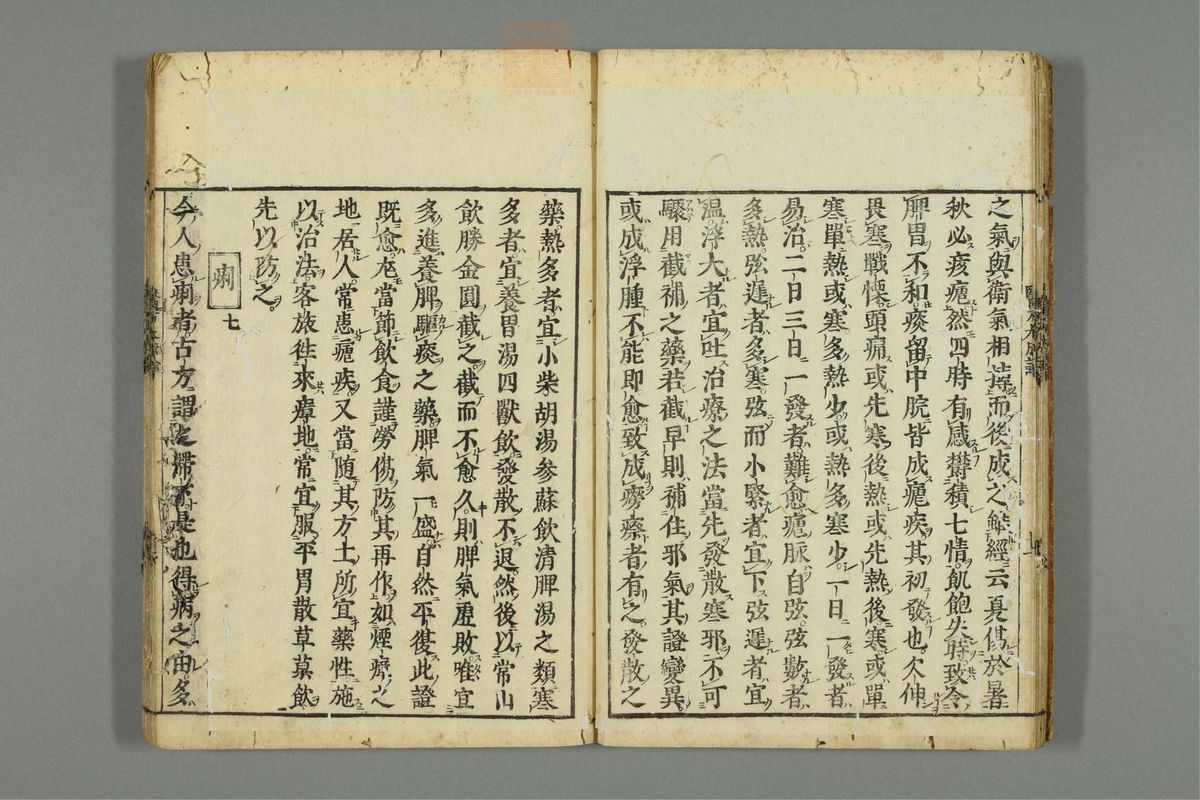 之氣與衛氣相搏而後成之雖經云夏傷於暑
秋必痎瘧然四時有感欝積七情飢飽失時致令
脾胃不和痰留中脘皆成瘧疾其初發也欠伸
畏寒戰慄頭痛或先寒後熱或先熱後寒或單
寒單熱或寒多熱少或熱多寒少一日一發者
易治二日三日一發者難愈瘧脉自弦弦數者
多熱弦遲者多寒弦而小緊者宜下弦遲者宜
温浮大者宜吐治療之法當先發散寒邪不可
驟用截補之藥若截早則補住邪氣其證變異
或成浮腫不能即愈致成癆瘵者有之發散之
藥熱多者宜小柴胡湯参蘇飲清脾湯之類寒
多者宜養胃湯四獸飲發散不退然後以常山
飲勝金圓截之截而不愈久則脾氣虚敗唯宜
多進養脾驅痰之藥脾氣一盛自然平復此證
既愈尤當節飲食謹勞傷防其再作如煙瘴之
地居人常患瘧疾又當随其方土所宜藥性施
以治法客旅徃來瘴地常宜服平胃散草菓飲
先以防之
痢 七
今人患痢者古方謂之滯下是也得病之由多